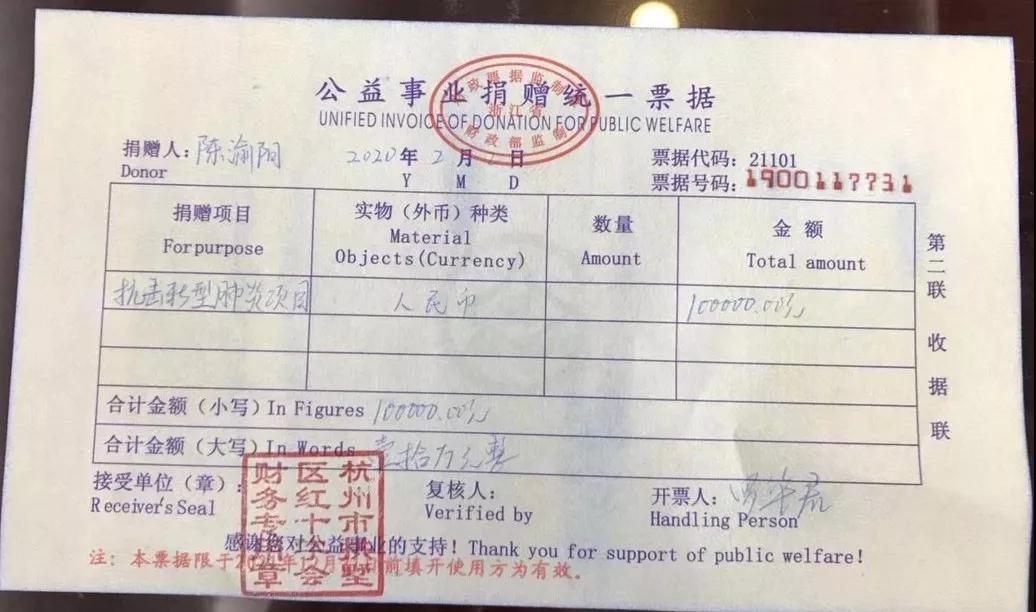 公益事业捐赠统一票据
UNIFIED INVOICE OF DONATION FOR PUBLIC WELFARE
浙江省
财政部监制
捐赠人：陈渝阳 2020年2月 日 票据代码：21101
Donor Y M D 票据号码：1900117731
捐赠项目 实物（外币）种类 数量 金额
For purpose Material Amount Total amount
Objects(Currency)
抗击新型肺炎项目 人民币 100000.00元
合计金额（小写）In Figures 100000.00元
合计金额（大写）In Words 壹拾万元整
接受单位（章）： 复核人： 开票人：
Receiver's Seal Verified by Handling Person
杭州市拱墅
区红十字会
财务专用章
感谢您对公益事业的支持！Thank you for support of public welfare!
注：本票据限于 年12月 前填开使用方为有效。
第二联 收据联